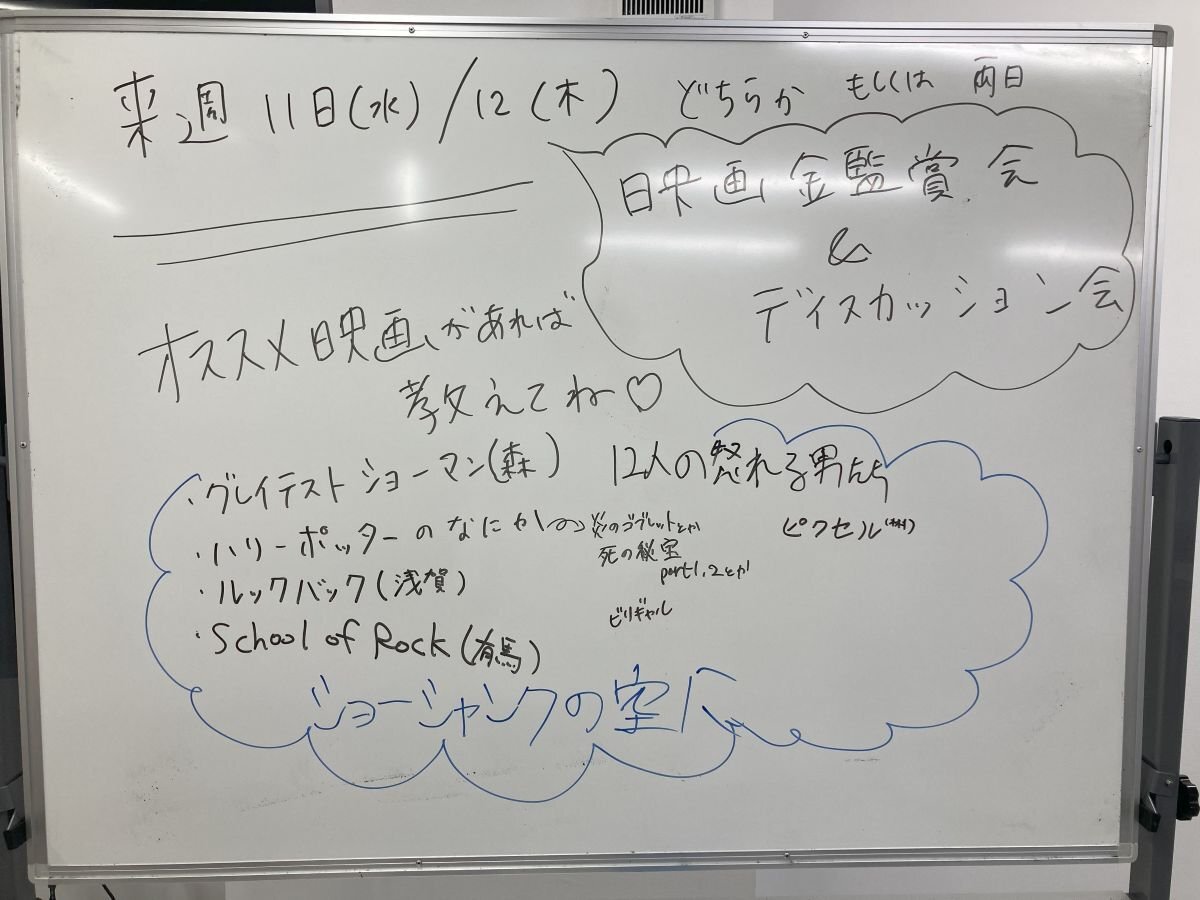 来週 11日(水)/12(木) どちらか もしくは 両日
映画鑑賞会
&
ディスカッション会
オススメ映画があれば
教えてね♡
・グレイテストショーマン(森)
・ハリーポッターのなにか
炎のゴブレットとか
死の秘宝
part1.2とか
・ルックバック(浅賀)
・School of Rock(有馬)
12人の怒れる男たち
ピクセル
ビリギャル
ショーシャンクの空へ